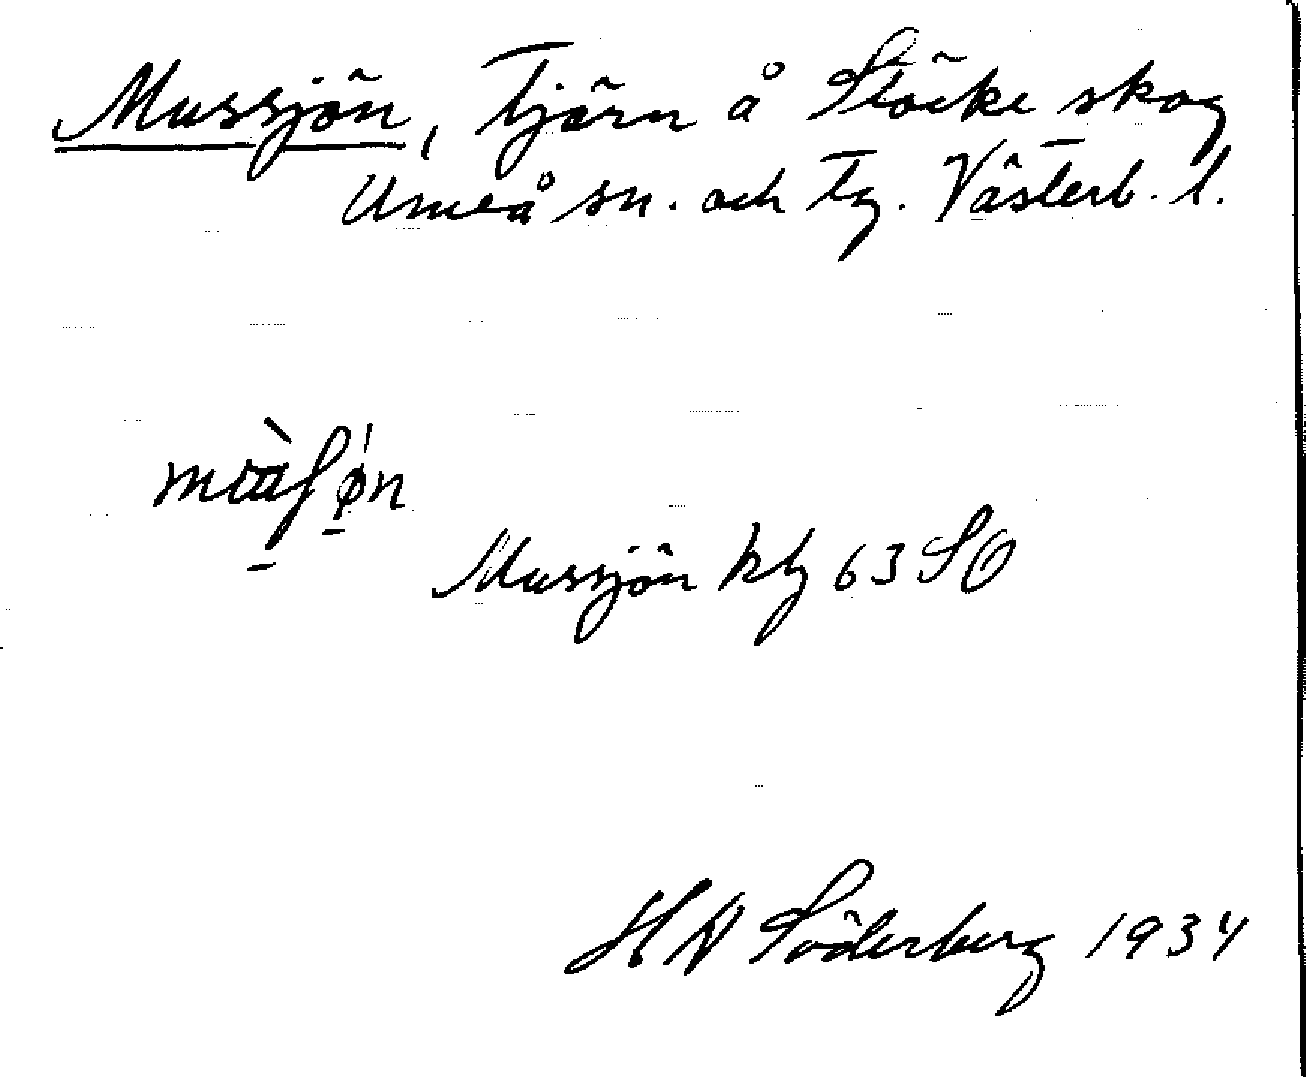 Mussjön, Tjärn å Stöcke skog
Umeå sn. och tg. Västerb. l.
Mussjön kbl 63 SO
H Söderberg 1934